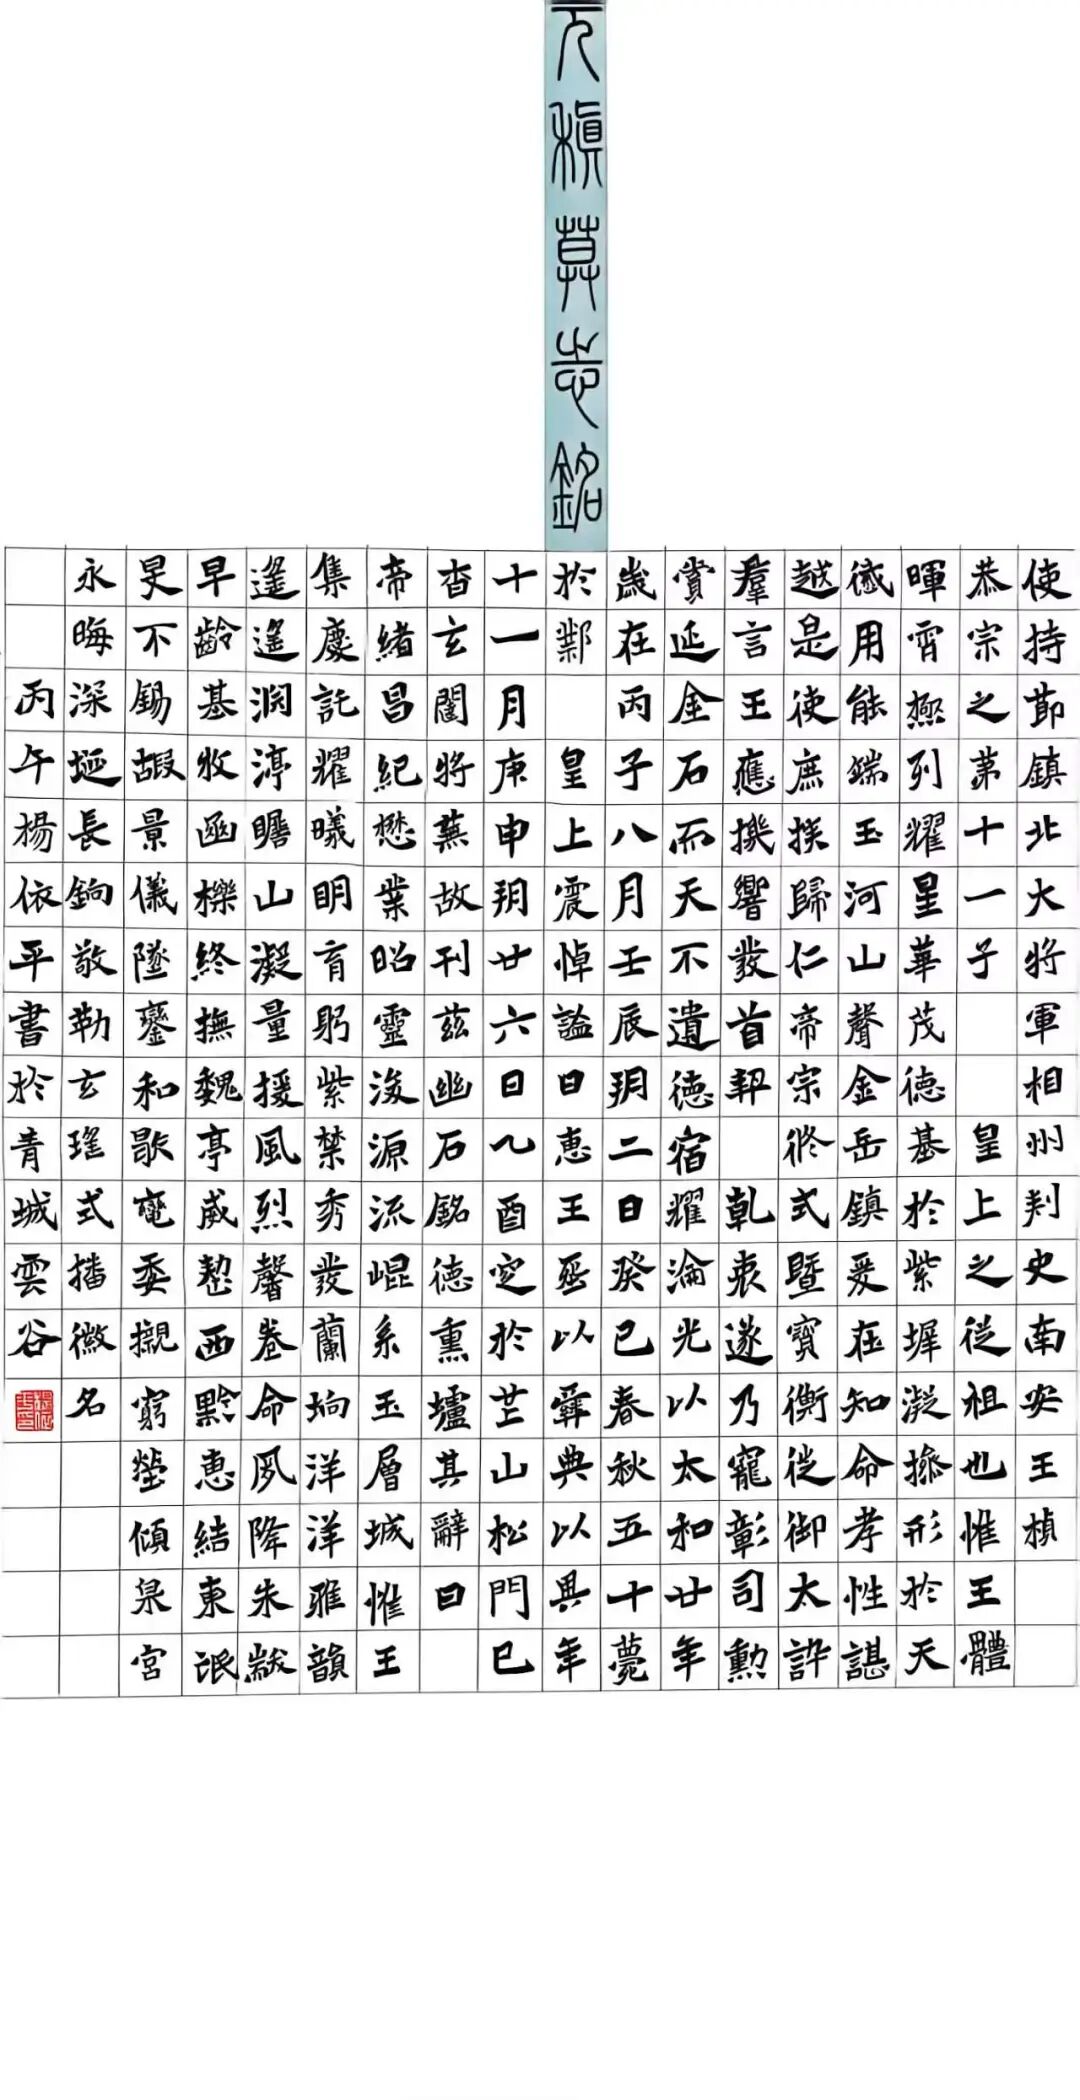 元楨墓志銘
使持節鎮北大將軍相州刾史南安王楨
恭宗之第十一子皇上之從祖也惟王體
暉霄極列耀星華茂德基於紫墀凝操形於天
感用能端玉河山聲金岳鎮爰在知命孝性諶
越是使庶族歸仁帝宗攸式暨寶衡從御太訏
羣言王應機響發首契乾衷遂乃寵彰司勳
賞延金石而天不遺德宿耀淪光以太和廿年
歲在丙子八月壬辰朔二日癸巳春秋五十薨
於鄴皇上震悼謚曰惠王葬以彝典以其年
十一月庚申朔廿六日乙酉窆於芒山松門已
杳玄闥將蕪故刊茲幽石銘德熏壚其辭曰
帝緒昌紀懋業昭靈浚源流崐系玉層城惟王
集慶託耀曦明育躬紫禁秀發蘭坰洋洋雅韻
遙遙淵渟瞻山凝量援風烈馨卷命夙降朱黻
早齡基牧函櫟終撫魏亭威整西黔惠結東氓
旻不錫嘏景儀墜鑾和歇電委櫬窮塋傾泉宮
永晦深埏長鉤敬勒玄瑤式播徽名
丙午楊依平書於青城雲谷